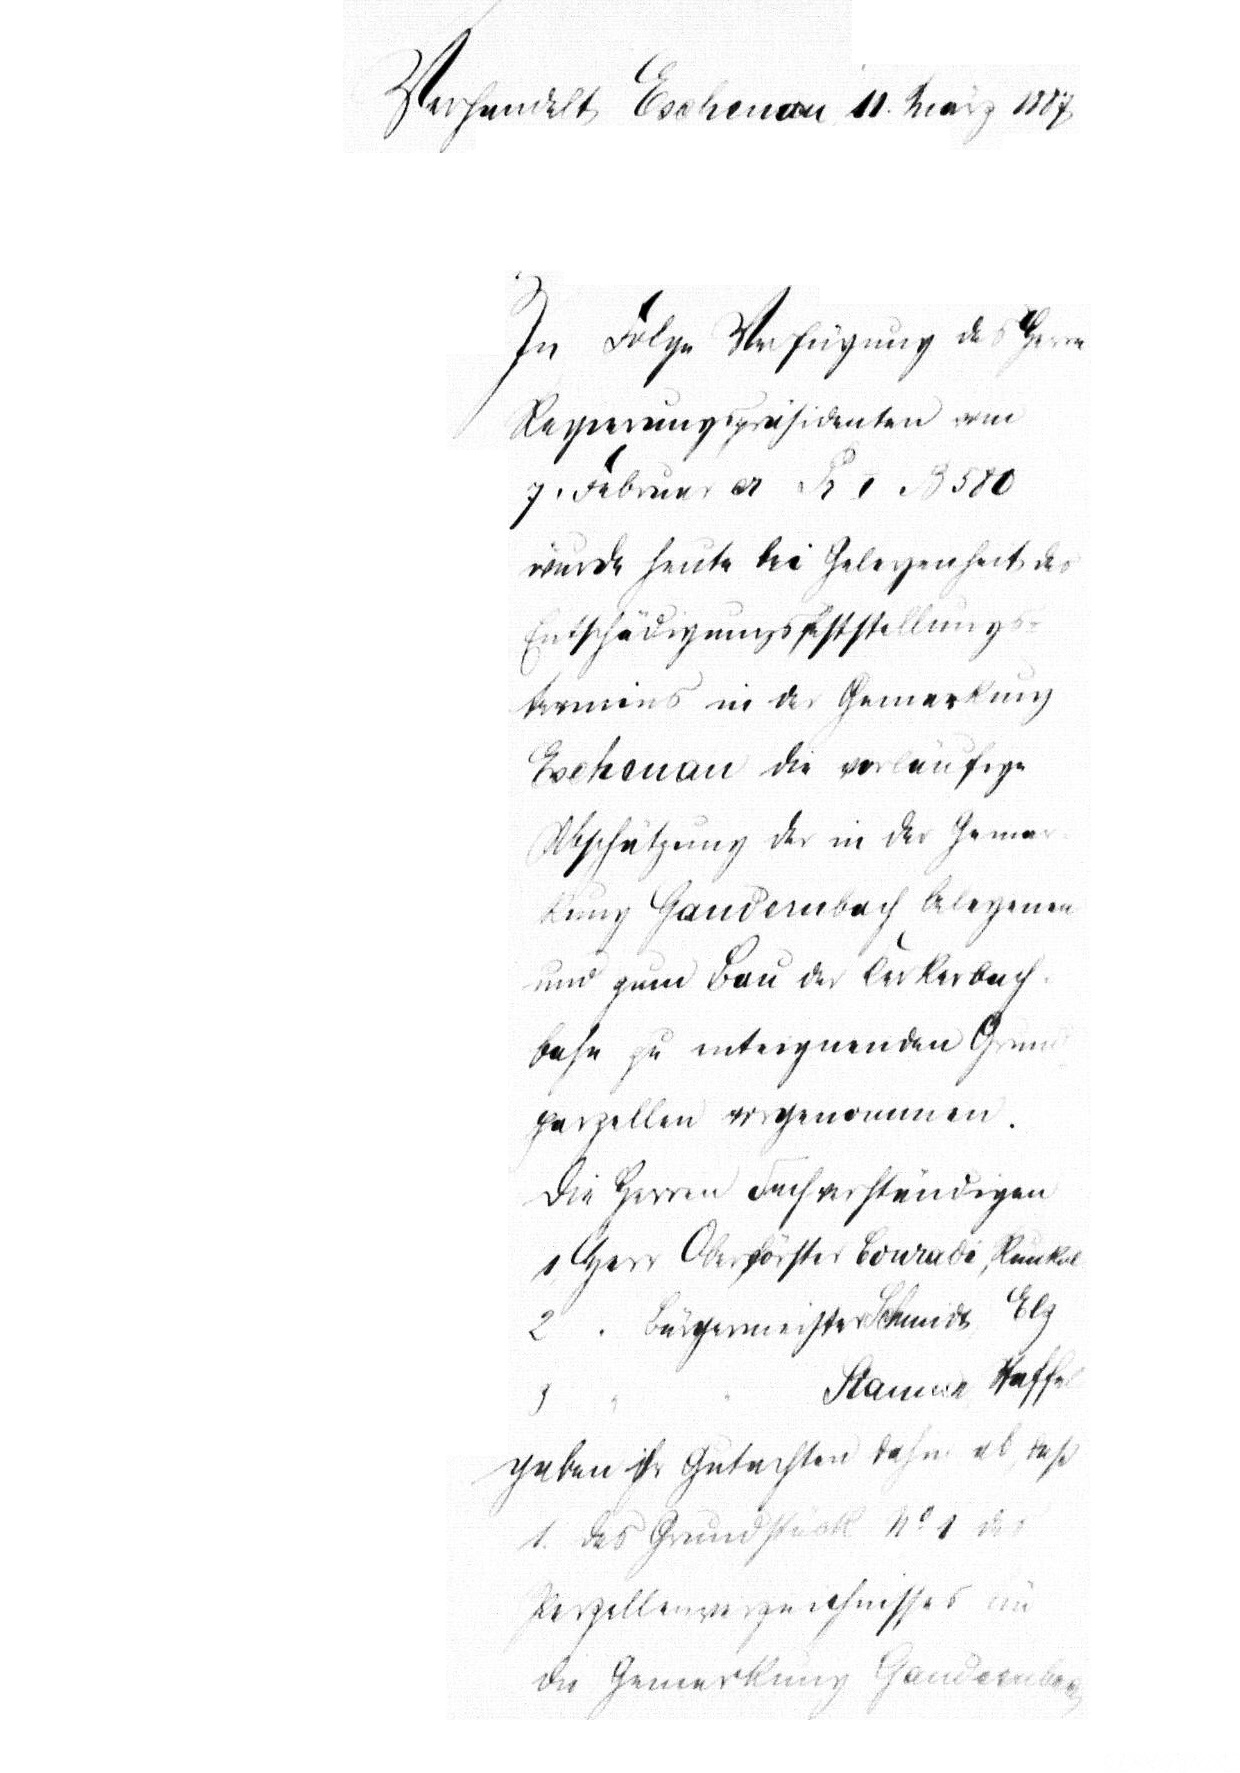 Verhandelt Eschenau 11. März 1887
In Folge Verfügung des Herrn
Regierungspräsidenten vom
7. Februar cr I B 580
wurde heute bei Gelegenheit des
Entschädigungsfeststellungs-
termins in der Gemarkung
Eschenau die vorläufige
Abschätzung der in der Gemar-
kung Gaudernbach belegenen
und zum Bau der Kerkerbach-
bahn zu enteignenden Grund
parzellen vorgenommen.
Die Herren Sachverständigen
1, Herr Oberförster Conradi, Runkel
2 " Bürgermeister Schmidt, Elz
3 " " Staffel
gaben ihr Gutachten dahin ab, daß
1. das Grundstück No 1 des
Parzellenverzeichnisses für
die Gemarkung Gaudernbach